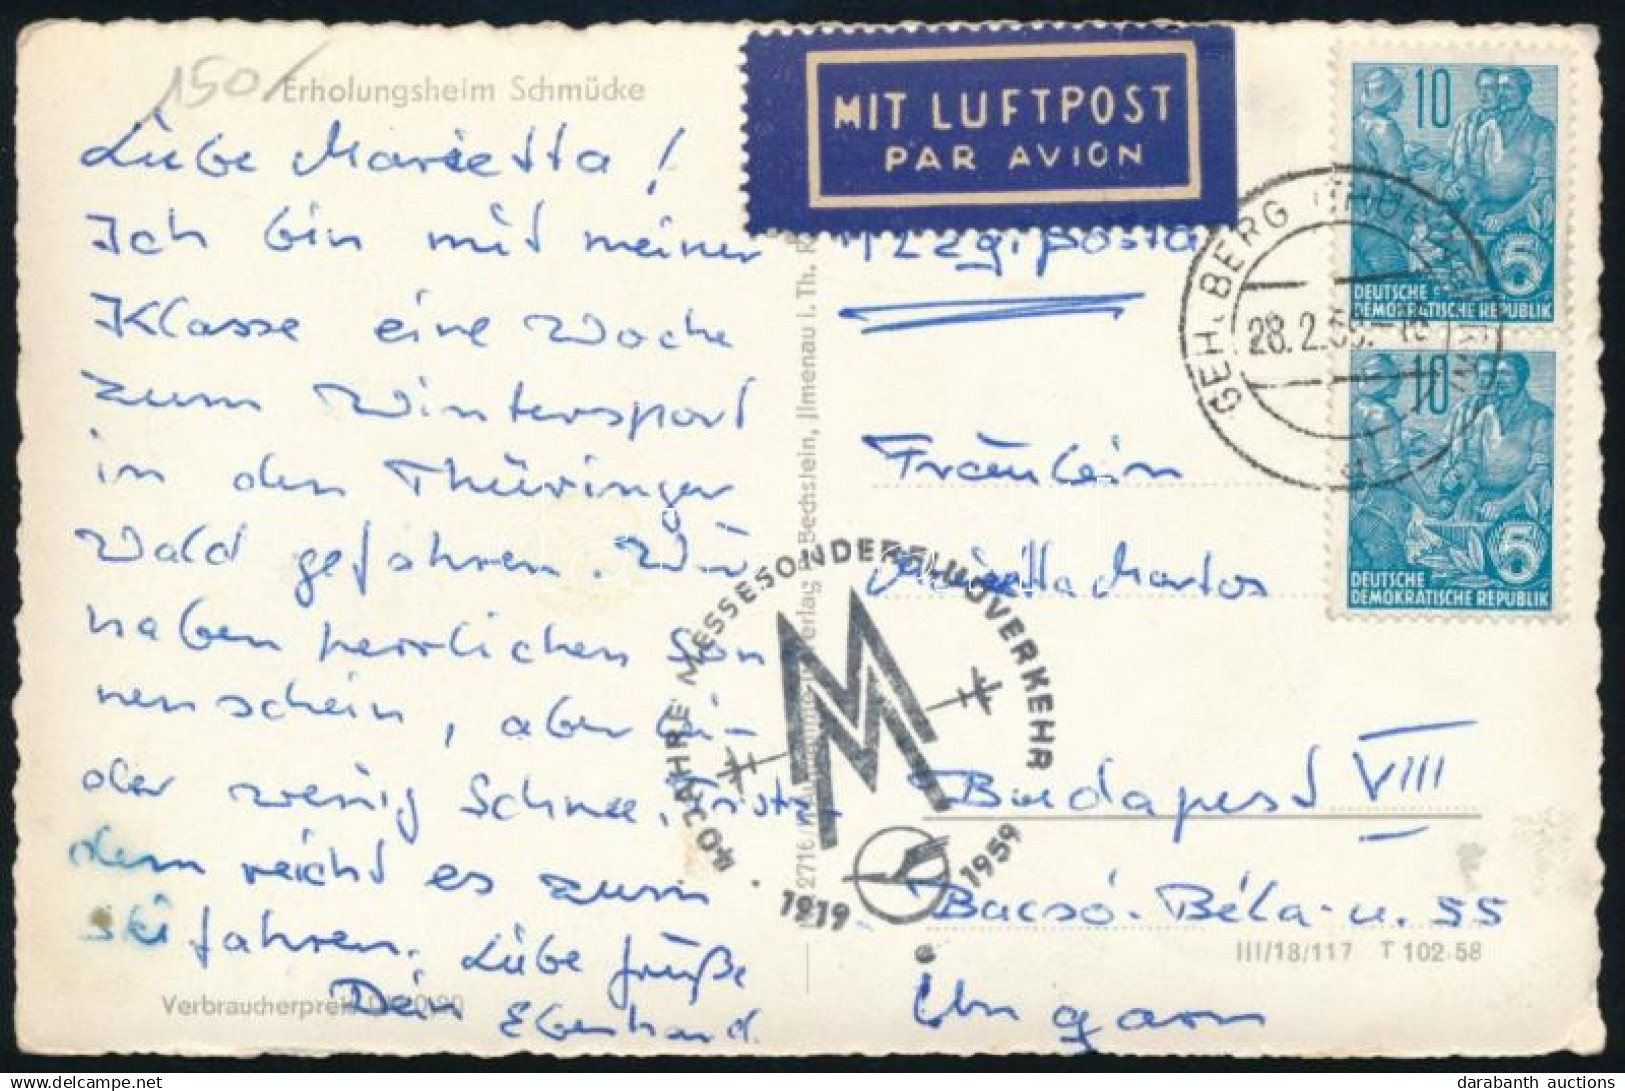 150
Erholungsheim Schmücke
Liebe Marietta!
Ich bin mit meiner
Klasse eine Woche
zum Wintersport
in den Thüringer
Wald gefahren. Wir
haben herrlichen Son
nenschein, aber lei-
der wenig Schnee, Trotz
dem reicht es zum
ski fahren. Liebe Grüße
Dein Eberhard.
Verbraucherpreis
Bechstein, Ilmenau i. Th.
MIT LUFTPOST
PAR AVION
Légiposta
Fräulein
Marietta Martos
Budapest VIII
Bacsó-Béla-u. 55
Ungarn
III/18/117 T 102 58
40 JAHRE MESSESONDERFLUGVERKEHR
1919 1959
GEHLBERG (THÜR
28.2.
10
5
DEUTSCHE
DEMOKRATISCHE REPUBLIK
10
5
DEUTSCHE
DEMOKRATISCHE REPUBLIK
darabanth auctions